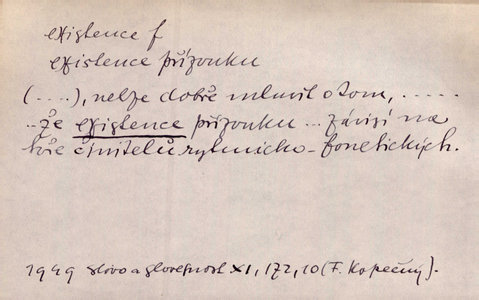 existence f
existence přízvuku
(....), nelze dobře mluvit o tom, .....
..že existence přízvuku ... závisí na
hře činitelů rytmicko-fonetických.
1949 Slovo a slovesnost XI, 172, 10 (F. Kopečný).